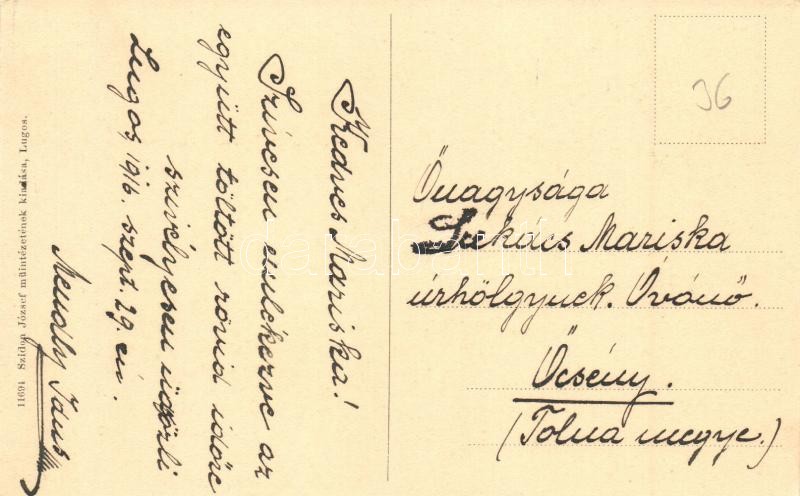 Kedves Mariska!
Szivesen emlékezve az
együtt töltött rövid időre
szivélyesen üdvözli
Lugos, 1916. szept. 29. én.
Mendly János
11694 Szidon József műintézetének kiadása, Lugos.
36
Őnagysága
Lukács Mariska
úrhölgynek. Óvónő.
Őcsény.
(Tolna megye.)
darabanth